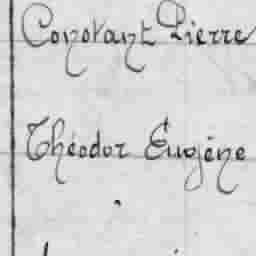 Constant Pierre
Théodor Eugéne